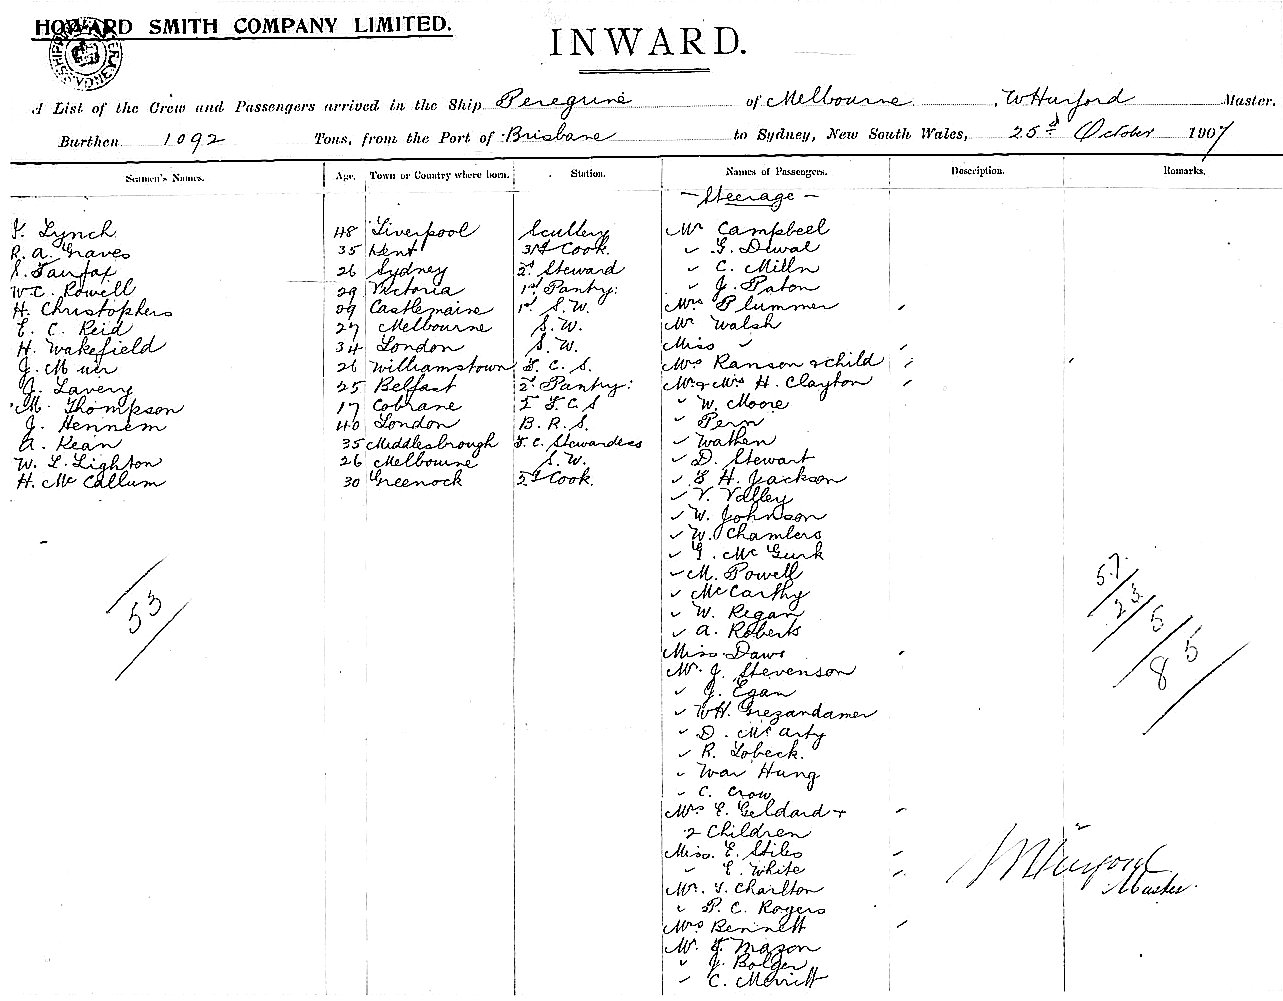 HOWARD SMITH COMPANY LIMITED.
INWARD.
A List of the Crew and Passengers arrived in the Ship Peregrine of Melbourne, W Hurford Master.
Burthen 1092 Tons, from the Port of Brisbane to Sydney, New South Wales, 25th October 1907
Seamen's Names. Age. Town or Country where born. Station. Names of Passengers. Description. Remarks.
- Steerage -
Lynch 48 Liverpool Scullery Mr Campbell
R. A. Graves 35 Kent 3rd Cook. " G. Duval
S. Fairfax 26 Sydney 2d Steward " C. Milln
W. C. Rowell 29 Victoria 1st Pantry: " J. Paton
H. Christophers 29 Castlemaine 1st S.W. Mrs Plummer
E. C. Reid 27 Melbourne S.W. Mr Walsh
H. Wakefield 34 London S.W. Miss "
J. Muir 26 Williamstown F. C. S. Mrs Ranson & child
J. Lavery 25 Belfast 2d Pantry: Mr & Mrs H. Clayton
M. Thompson 17 Cobrane F.C.S " W. Moore
J. Hennem 40 London B.R.S. " Penn
A. Kean 35 Middlesbrough F.C. Stewardess " Wathen
W. L. Lighton 26 Melbourne S.W. " D. Stewart
H. McCallum 30 Greenock 2d Cook. " H. Jackson
" V. Valley
" W. Johnson
" W. Chamlers
" McGurk
" M. Powell
" McCarthy
" W. Regan
" A. Roberts
Miss Daws
Mr. J. Stevenson
" J. Egan
" W H. Grezandamer
" D. McArty
" R. Lobeck.
" War Hung
" C. Crow
Mrs E. Geldard +
2 Children
Miss. E. Stiles
" E. White
Mr. Charlton
" P. C. Rogers
Mrs Bennett
Mr F. Mazon
" J. Bolger
" C. Merritt
53
57
23
5
85
W Hurford
Master.